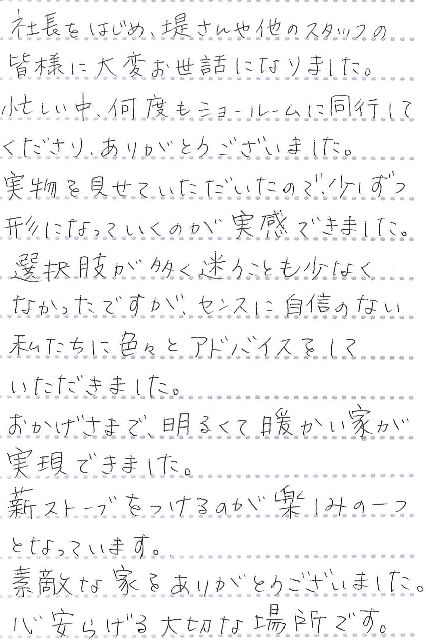 社長をはじめ、堤さんや他のスタッフの
皆様に大変お世話になりました。
忙しい中、何度もショールームに同行して
くださり、ありがとうございました。
実物を見せていただいたので、少しずつ
形になっていくのが実感できました。
選択肢が多く迷うことも少なく
なかったですが、センスに自信のない
私たちに色々とアドバイスをして
いただきました。
おかげさまで、明るくて暖かい家が
実現できました。
薪ストーブをつけるのが楽しみの一つ
となっています。
素敵な家をありがとうございました。
心安らげる大切な場所です。